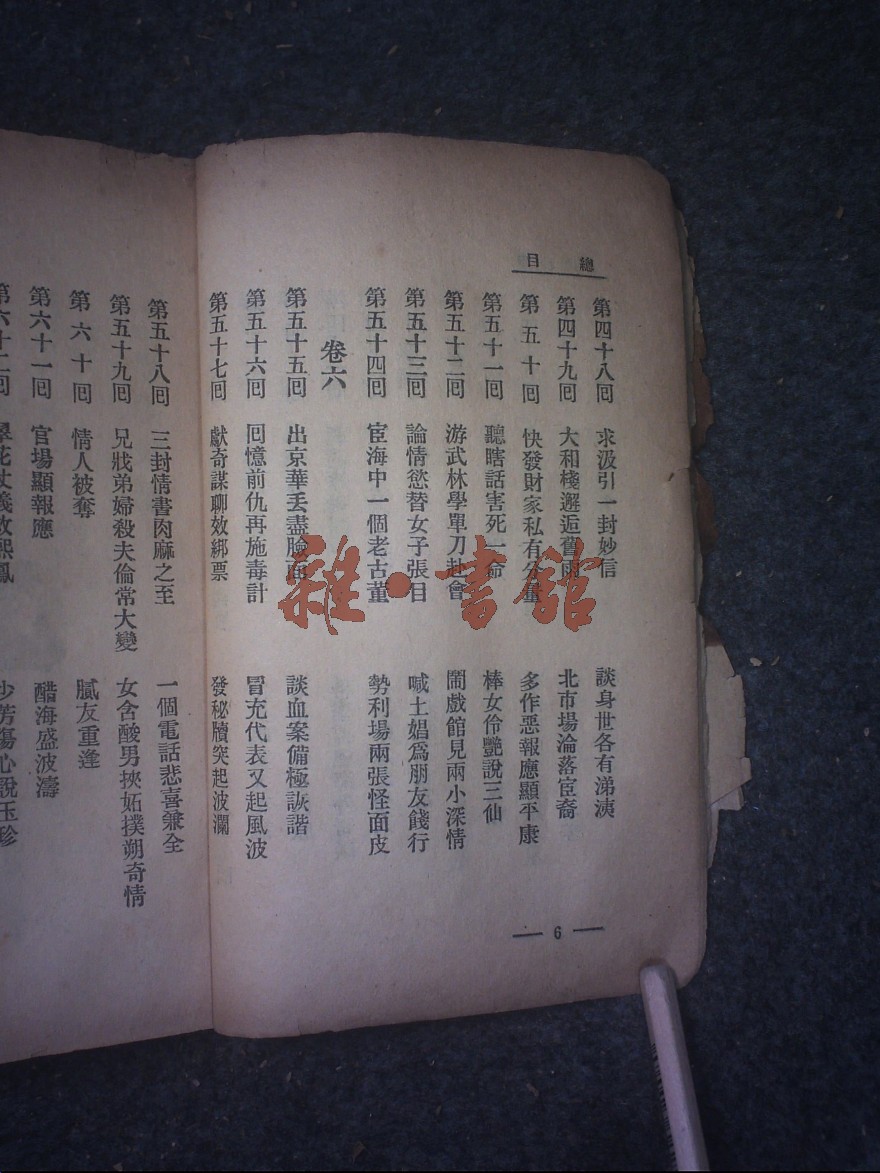 總目
第四十八囘 求汲引一封妙信 談身世各有涕洟
第四十九囘 大和棧邂逅舊雨 北市場淪落宦裔
第五十囘 快發財家私有分量 多作惡報應顯平康
第五十一囘 聽瞎話害死一命 棒女伶艷說三仙
第五十二囘 游武林學單刀赴會 鬧戲館見兩小深情
第五十三囘 論情慾替女子張目 喊土娼爲朋友餞行
第五十四囘 宦海中一個老古董 勢利場兩張怪面皮
卷六
第五十五囘 出京華丟盡臉面 談血案備極詼諧
第五十六囘 囘憶前仇再施毒計 冒充代表又起風波
第五十七囘 獻奇謀聊效綁票 發秘牘突起波瀾
— 6 —
第五十八囘 三封情書肉麻之至 一個電話悲喜兼全
第五十九囘 兄戕弟婦殺夫倫常大變 女含酸男挾妬撲朔奇情
第六十囘 情人被奪 膩友重逢
第六十一囘 官場顯報應 醋海盛波濤
第六十二囘 傷心說玉珍
雜·書館